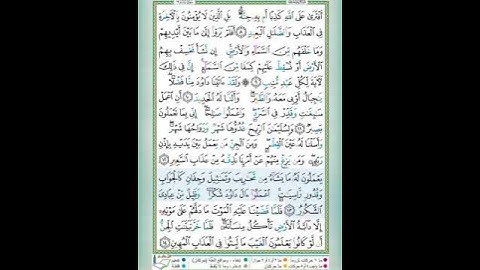 أَفْتَرَىٰ عَلَى ٱللَّهِ كَذِبًا أَم بِهِۦ جِنَّةٌۢ ۗ بَلِ ٱلَّذِينَ لَا يُؤْمِنُونَ بِٱلْـَٔاخِرَةِ
فِى ٱلْعَذَابِ وَٱلضَّلَـٰلِ ٱلْبَعِيدِ ٨ أَفَلَمْ يَرَوْا۟ إِلَىٰ مَا بَيْنَ أَيْدِيهِمْ
وَمَا خَلْفَهُم مِّنَ ٱلسَّمَآءِ وَٱلْأَرْضِ ۚ إِن نَّشَأْ نَخْسِفْ بِهِمُ
ٱلْأَرْضَ أَوْ نُسْقِطْ عَلَيْهِمْ كِسَفًا مِّنَ ٱلسَّمَآءِ ۚ إِنَّ فِى ذَٰلِكَ
لَـَٔايَةً لِّكُلِّ عَبْدٍ مُّنِيبٍ ٩ وَلَقَدْ ءَاتَيْنَا دَاوُۥدَ مِنَّا فَضْلًا ۖ
يَـٰجِبَالُ أَوِّبِى مَعَهُۥ وَٱلطَّيْرَ ۖ وَأَلَنَّا لَهُ ٱلْحَدِيدَ ١٠ أَنِ ٱعْمَلْ
سَـٰبِغَـٰتٍ وَقَدِّرْ فِى ٱلسَّرْدِ ۖ وَٱعْمَلُوا۟ صَـٰلِحًا ۖ إِنِّى بِمَا تَعْمَلُونَ
بَصِيرٌ ١١ وَلِسُلَيْمَـٰنَ ٱلرِّيحَ غُدُوُّهَا شَهْرٌ وَرَوَاحُهَا شَهْرٌ ۖ
وَأَسَلْنَا لَهُۥ عَيْنَ ٱلْقِطْرِ ۖ وَمِنَ ٱلْجِنِّ مَن يَعْمَلُ بَيْنَ يَدَيْهِ بِإِذْنِ
رَبِّهِۦ ۖ وَمَن يَزِغْ مِنْهُمْ عَنْ أَمْرِنَا نُذِقْهُ مِنْ عَذَابِ ٱلسَّعِيرِ ١٢
يَعْمَلُونَ لَهُۥ مَا يَشَآءُ مِن مَّحَـٰرِيبَ وَتَمَـٰثِيلَ وَجِفَانٍ كَٱلْجَوَابِ
وَقُدُورٍ رَّاسِيَـٰتٍ ۚ ٱعْمَلُوٓا۟ ءَالَ دَاوُۥدَ شُكْرًا ۚ وَقَلِيلٌ مِّنْ عِبَادِىَ
ٱلشَّكُورُ ١٣ فَلَمَّا قَضَيْنَا عَلَيْهِ ٱلْمَوْتَ مَا دَلَّهُمْ عَلَىٰ مَوْتِهِۦٓ
إِلَّا دَآبَّةُ ٱلْأَرْضِ تَأْكُلُ مِنسَأَتَهُۥ ۖ فَلَمَّا خَرَّ تَبَيَّنَتِ ٱلْجِنُّ
أَن لَّوْ كَانُوا۟ يَعْلَمُونَ ٱلْغَيْبَ مَا لَبِثُوا۟ فِى ٱلْعَذَابِ ٱلْمُهِينِ ١٤